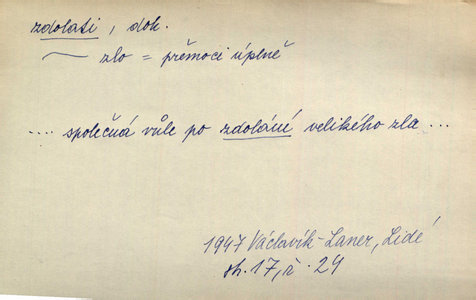 zdolati, dok.
~ zlo = přemoci úplně
.... společná vůle po zdolání velikého zla ...
1947 Václavík-Laner, Lidé
str. 17, ř. 24